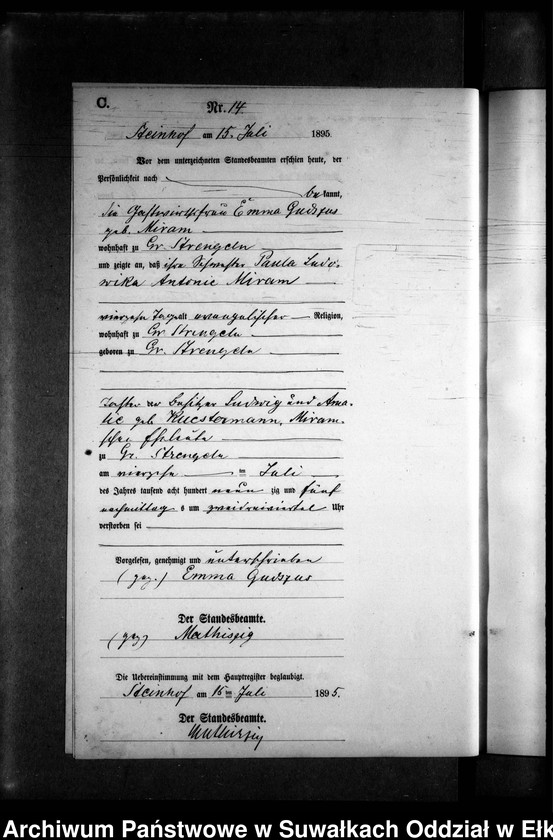 C.
Nr. 14
Steinhof am 15. Juli 1895.
Vor dem unterzeichneten Standesbeamten erschien heute, der
Persönlichkeit nach
bekannt,
die Gastwirthsfrau Emma Gudszus
geb. Miram
wohnhaft zu Gr. Strengeln
und zeigte an, daß ihre Schwester Paula Ludo-
wika Antonie Miram
vierzehn Tage alt evangelischer Religion,
wohnhaft zu Gr. Strengeln
geboren zu Gr. Strengeln
Tochter der Besitzer Ludwig und Ama-
lie geb. Miram-
schen Eheleute
zu Gr. Strengeln
am vierzehn ten Juli
des Jahres tausend acht hundert neun zig und fünf
nachmittags um zweidreiviertel Uhr
verstorben sei
Vorgelesen, genehmigt und unterschrieben
(gez.) Emma Gudszus
Der Standesbeamte.
(gez) Mathiszig
Die Uebereinstimmung mit dem Hauptregister beglaubigt.
Steinhof am 15ten Juli 1895.
Der Standesbeamte.
Mathiszig
Archiwum Państwowe w Suwałkach Oddział w Ełk